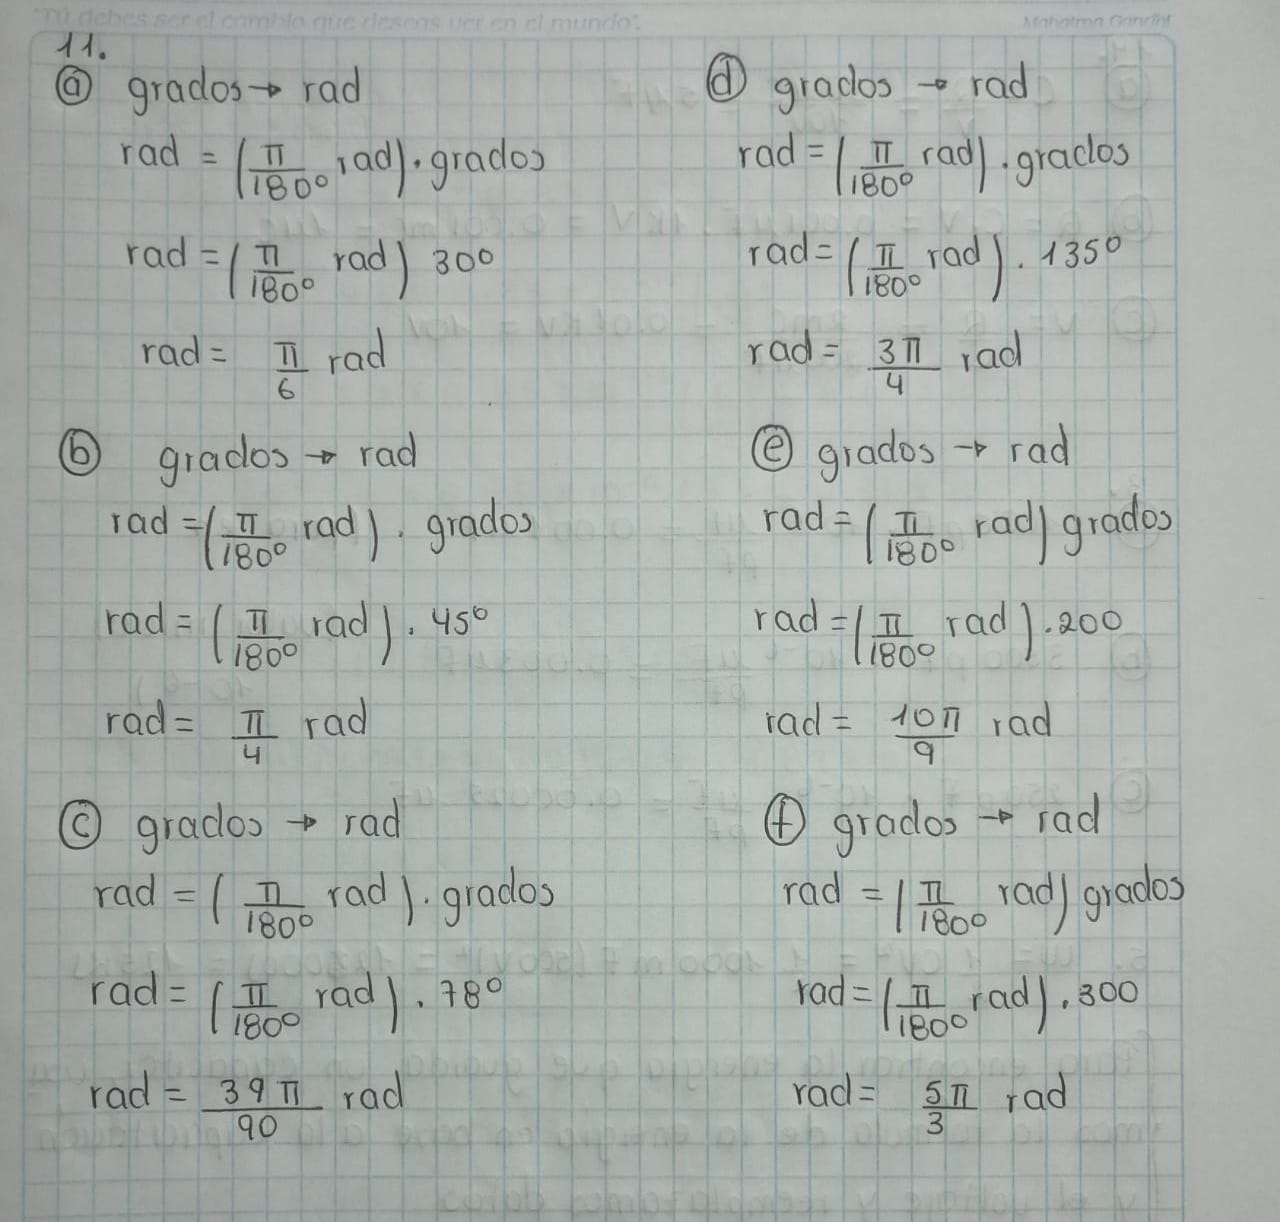 "Tú debes ser el cambio que deseas ver en el mundo". Mahatma Gandhi
11.
ⓐ grados → rad
rad = (π/180° rad) · grados
rad = (π/180° rad) 30°
rad = π/6 rad
ⓑ grados → rad
rad = (π/180° rad) · grados
rad = (π/180° rad) · 45°
rad = π/4 rad
ⓒ grados → rad
rad = (π/180° rad) · grados
rad = (π/180° rad) · 78°
rad = 39π/90 rad
ⓓ grados → rad
rad = (π/180° rad) · grados
rad = (π/180° rad) · 135°
rad = 3π/4 rad
ⓔ grados → rad
rad = (π/180° rad) grados
rad = (π/180° rad) · 200
rad = 10π/9 rad
ⓕ grados → rad
rad = (π/180° rad) grados
rad = (π/180° rad) · 300
rad = 5π/3 rad